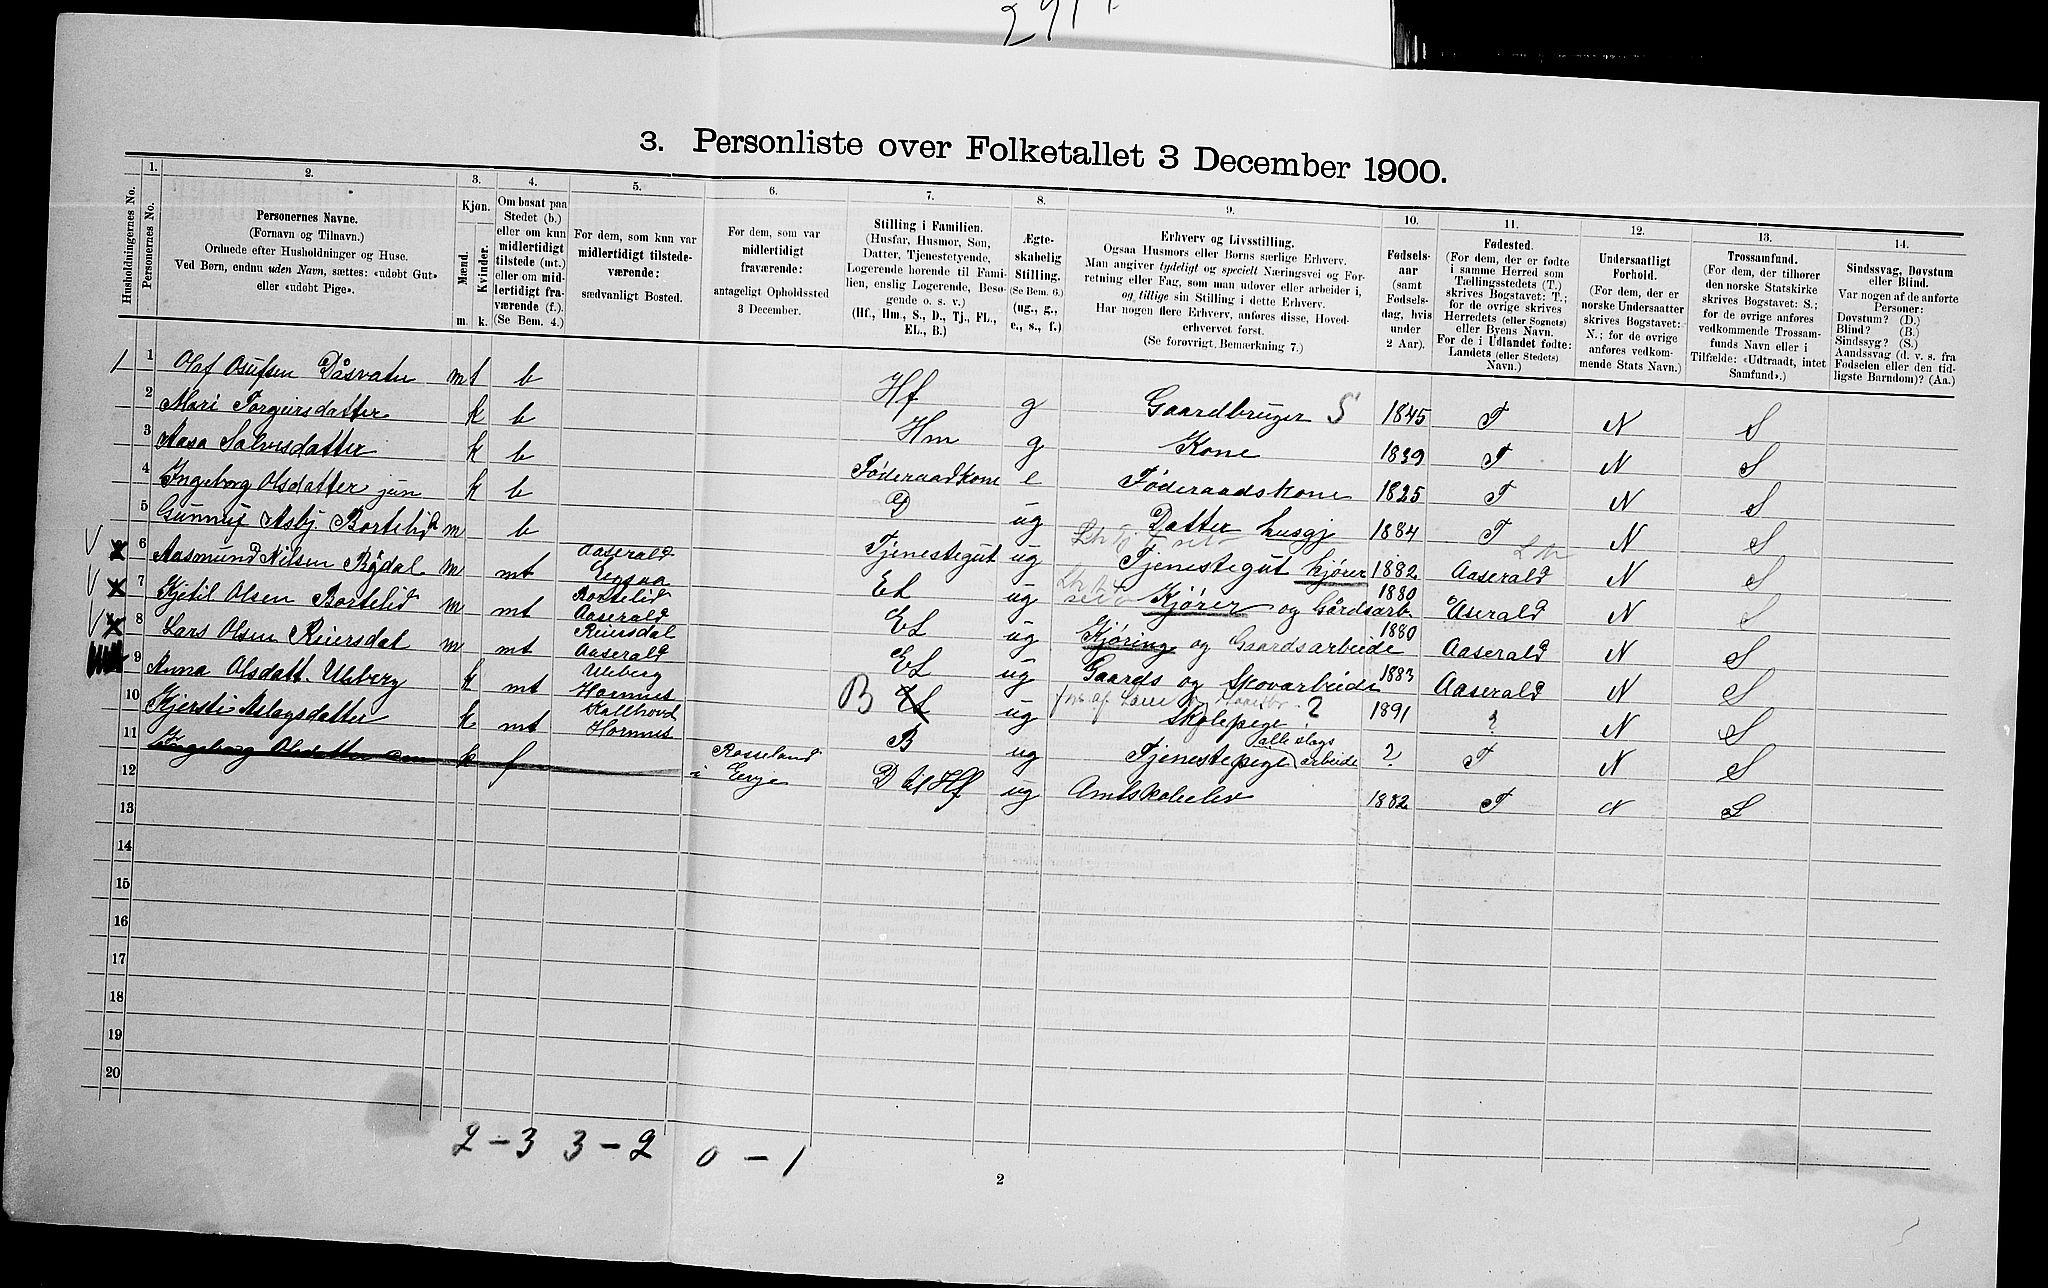 3. Personliste over Folketallet 3 December 1900.
Husholdningernes No.
1. Personernes No.
2.
Personernes Navne.
(Fornavn og Tilnavn.)
Ordnede efter Husholdninger og Huse.
Ved Børn, endnu uden Navn, sættes: «udøbt Gut»
eller «udøbt Pige».
3.
Kjøn.
Mænd. Kvinder.
m. k.
4.
Om bosat paa
Stedet (b.)
eller om kun
midlertidigt
tilstede (mt.)
eller om mid-
lertidigt fra-
værende (f.).
(Se Bem. 4.)
5.
For dem, som kun var
midlertidigt tilstede-
værende:
sædvanligt Bosted.
6.
For dem, som var
midlertidigt
fraværende:
antageligt Opholdssted
3 December.
7.
Stilling i Familien.
(Husfar, Husmor, Søn,
Datter, Tjenestetyende,
Logerende hørende til Fami-
lien, enslig Logerende, Besø-
gende o. s. v.)
(Hf., Hm., S., D., Tj., FL.,
EL., B.)
8.
Ægte-
skabelig
Stilling.
(Se Bem. 6.)
(ug., g.,
e., s., f.)
9.
Erhverv og Livsstilling.
Ogsaa Husmors eller Børns særlige Erhverv.
Man angiver tydeligt og specielt Næringsvei og For-
retning eller Fag, som man udøver eller arbeider i,
og tillige sin Stilling i dette Erhverv.
Har nogen flere Erhverv, anføres disse, Hoved-
erhvervet først.
(Se forøvrigt Bemærkning 7.)
10.
Fødsels-
aar
(samt
Fødsels-
dag, hvis
under
2 Aar).
11.
Fødested.
(For dem, der er fødte
i samme Herred som
Tællingsstedets (T.)
skrives Bogstavet: T.;
for de øvrige skrives
Herredets (eller Sognets)
eller Byens Navn.
For de i Udlandet fødte:
Landets (eller Stedets)
Navn.)
12.
Undersaatligt
Forhold.
(For dem, der er
norske Undersaatter
skrives Bogstavet:
N.; for de øvrige
anføres vedkom-
mende Stats Navn.)
13.
Trossamfund.
(For dem, der tilhører
den norske Statskirke
skrives Bogstavet: S.;
for de øvrige anføres
vedkommende Trossam-
funds Navn eller i
Tilfælde: «Udtraadt, intet
Samfund».)
14.
Sindssvag, Døvstum
eller Blind.
Var nogen af de anførte
Personer:
Døvstum? (D.)
Blind? (B.)
Sindssyg? (S.)
Aandssvag (d. v. s. fra
Fødselen eller den tid-
ligste Barndom)? (Aa.)
1 1 Olaf Osufsen Dåsvatn m b Hf g Gaardbruger S 1845 T N S
2 Mari Torgeirsdatter k b Hm g Kone 1839 T N S
3 Aasa Salvesdatter k b Føderaadkone e Føderaadskone 1825 T N S
4 Ingeborg Olsdatter jun k b D ug Datter husgj 1884 T N S
5 Gunnuf Asbj Bortelid m b Tjenestegut ug Tjenestegut kjører 1882 Aaserald N S
6 Aasmund Nilsen Bødal m mt Aaserald EL ug Kjører og Gårdsarb. 1880 Aserald N S
7 Kjetil Olsen Bortelid m mt Bortelid Aaserald EL ug Kjøring og Gaardsarbeide 1880 Aaserald N S
8 Lars Olsen Reiersdal m mt Reiersdal Aaserald EL ug Gaards og Skovarbeide 1883 Aaserald N S
9 Anna Olsdatt. Uleberg k mt Uleberg Hornnes B ug Skolepige 1891 ? N S
10 Kjersti Aslagsdatter k mt Kallhovd Hornnes B ug Tjenestepige alle slags arbeide ? T N S
11 Ingeborg Olsdatter k f Rosseland i Evje D til Hf ug Amtskoleelev 1882 T N S
12
13
14
15
16
17
18
19
20
2 – 3 3 – 2 0 – 1
2